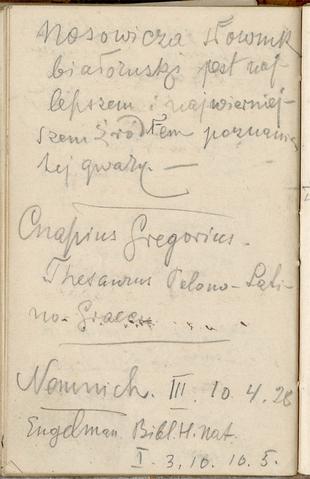 Nosowicza słownik
białoruski jest naj-
lepszem i najwierniej-
szem źródłem poznania
tej gwary. —
Cnapius Gregorius.
Thesaurus Polono-Lati-
no-Graecus
Nemnich. III. 10. 4. 28
Engelman Bibl. H. nat.
I. 3, 10. 10. 5.